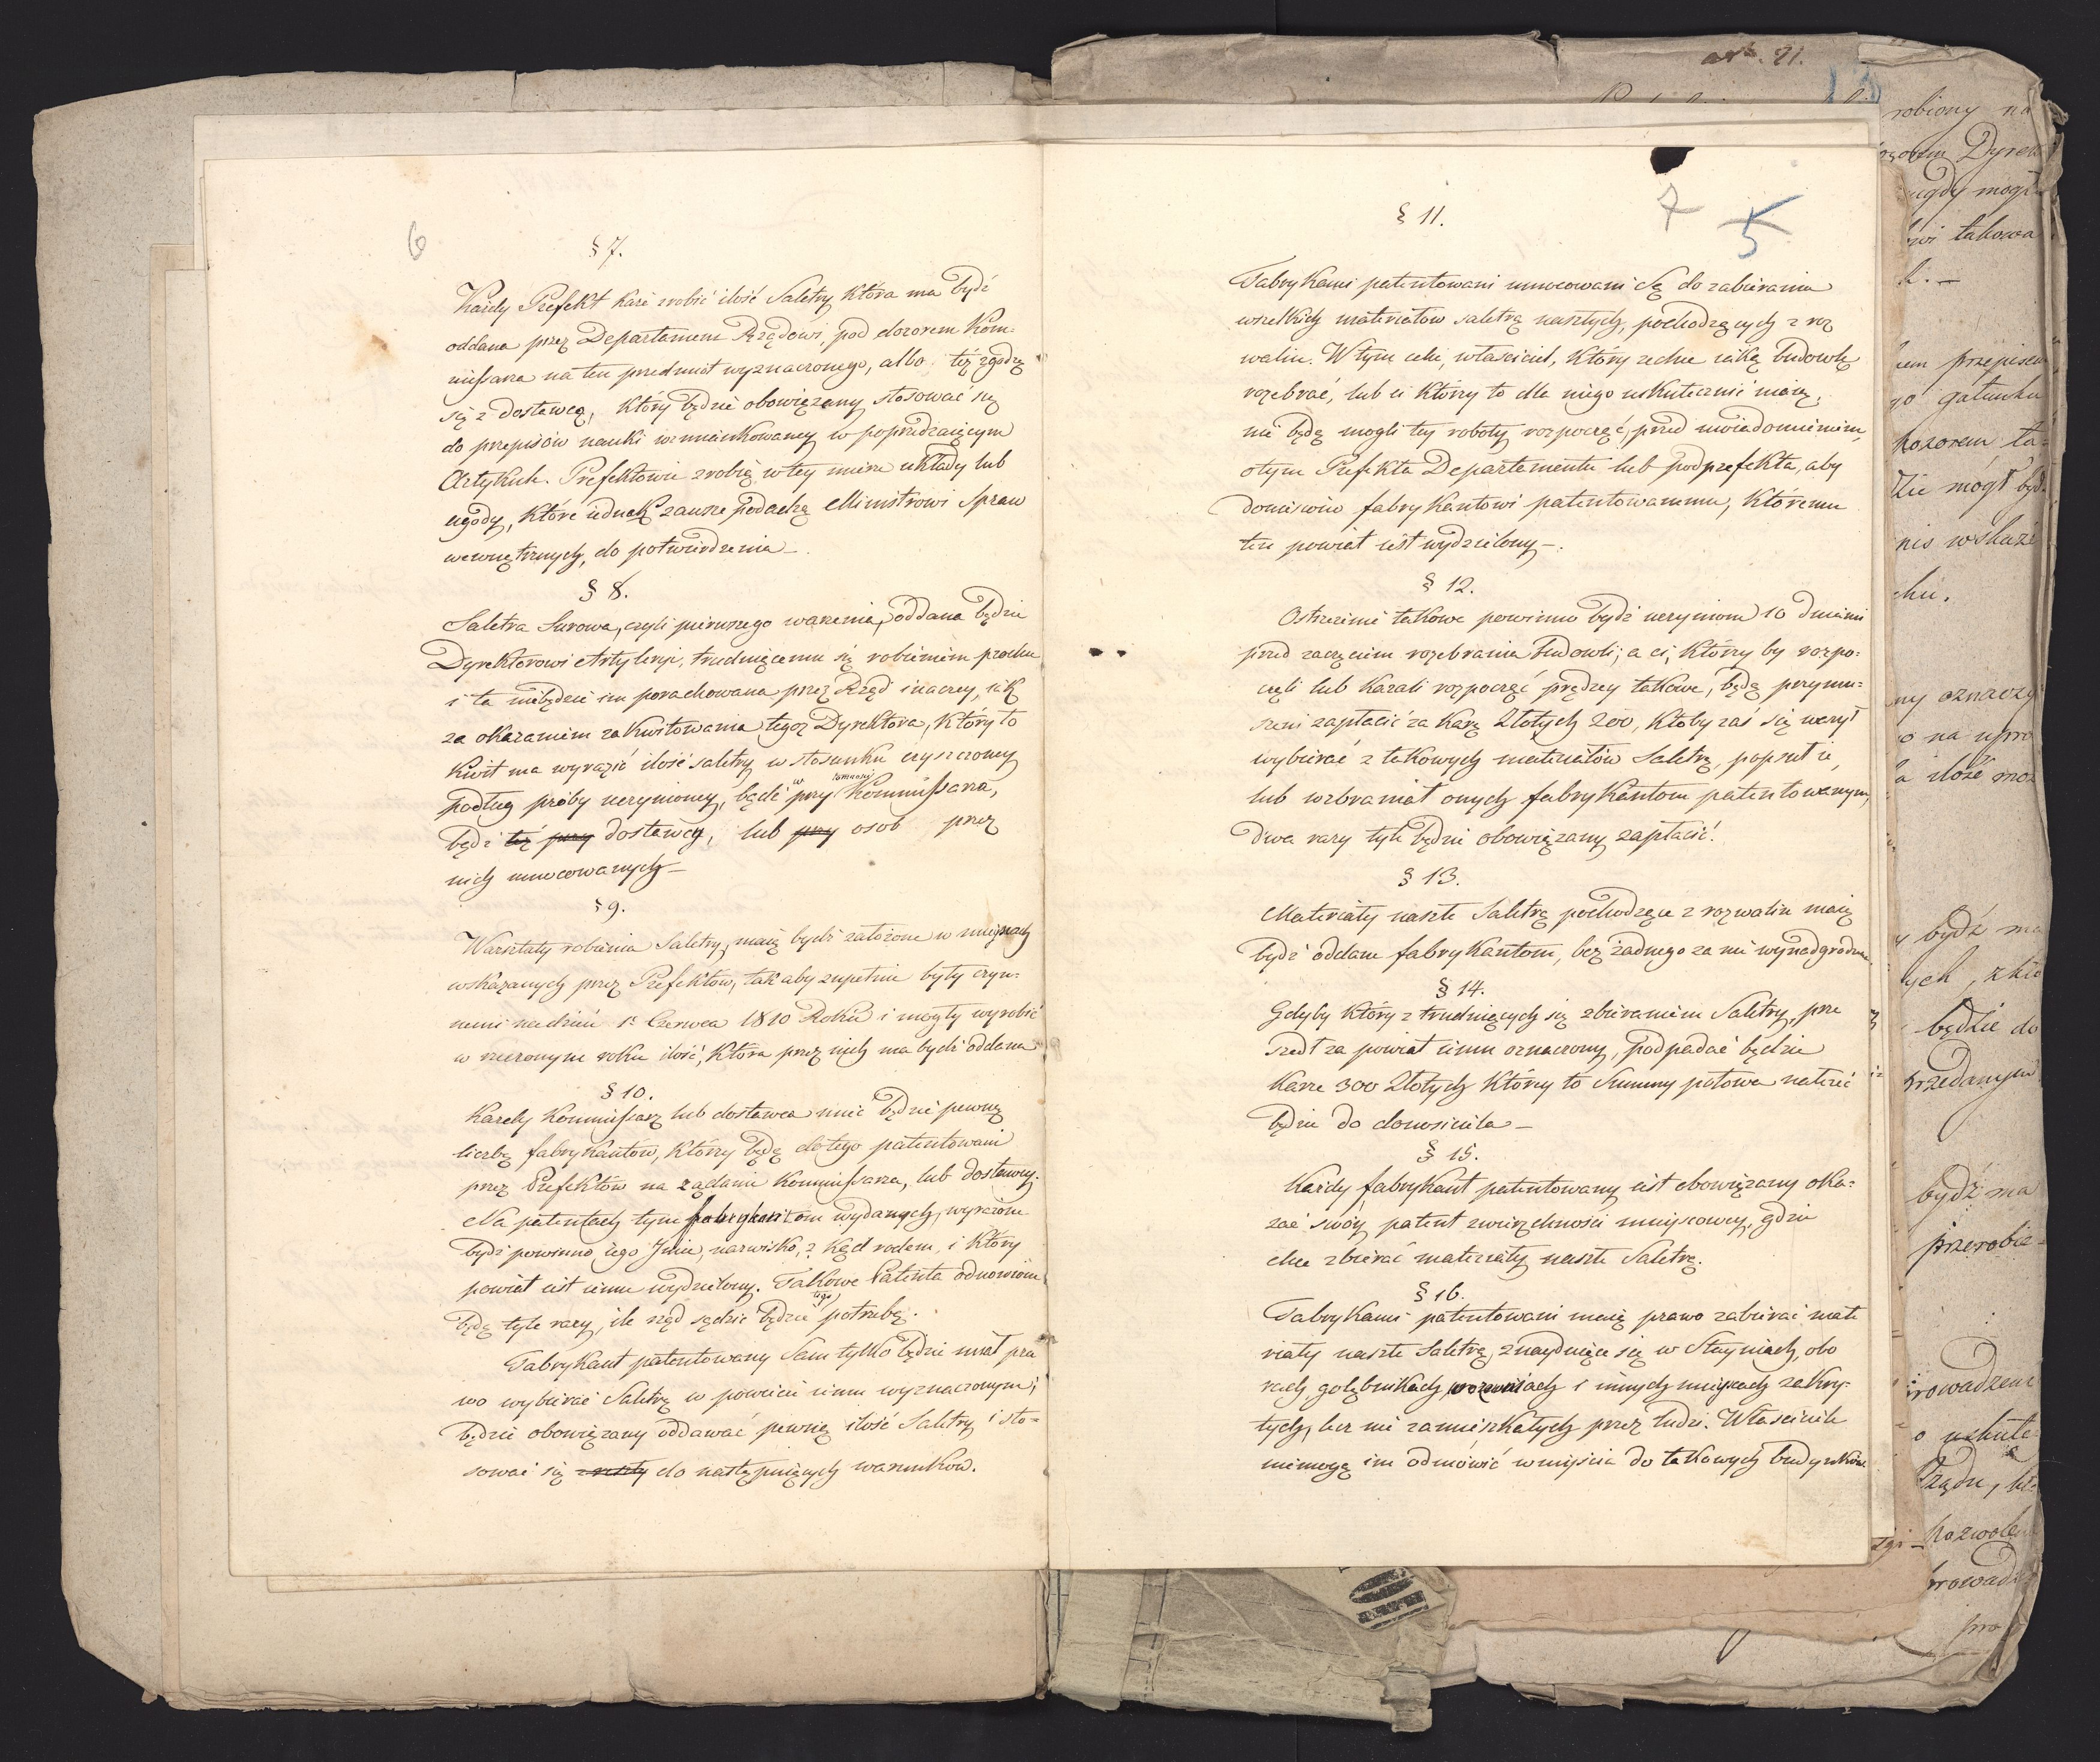 6
§ 7.
Każdy Prefekt każe zrobić ilość Saletry która ma bydź
oddana przez Departament Rządowi, pod dozorem Kom-
missarza na ten przedmiot wyznaczonego, albo też zgodzą
się z dostawcą, który będzie obowiązany stosować się
do przepisów nauki wzmiankowaney w poprzedzaiącym
Artykule. Prefektowie zrobią w tey mierze układy lub
ugody, które iednak zawsze podadzą Ministrowi Spraw
wewnętrznych, do potwierdzenia —.
§ 8.
Saletra Surowa, czyli pierwszego warzenia, oddana będzie
Dyrektorowi Artyleryi, trudniącemu się robieniem prochu
i ta niebędzie im porachowana przez Rząd inaczey, iak
za okazaniem zakwitowania tegoż Dyrektora, który to
Kwit ma wyrazić ilość saletry w stosunku czyszczoney
podług próby uczynioney, bądź w przytomności Kommissarza,
bądź też przy dostawcy, lub przy osob przez
nich umocowanych —
§ 9.
Warsztaty robienia Saletry, maią bydź założone w mieyscach
wskazanych przez Prefektow, tak aby zupełnie były czyn-
nemi na dzień 1o Czerwca 1810 Roku i mogły wyrobić
w rzeczonym roku ilość, która przez nich ma bydź oddana
§ 10.
Każdy Kommissarz lub dostawca mieć będzie pewną
liczbę fabrykantów, którzy będą do tego patentowani
przez Prefektów na żądanie Kommissarza, lub dostawcy.
Na patentach tym fabrykantom wydanych, wyrażone
bydź powinno iego Jmie, nazwisko, z kąd rodem, i który
powiat iest iemu wydzielony. Takowe Patenta odnowione
będą tyle razy, ile rząd sądzić będzie tego potrzebę.
Fabrykant patentowany Sam tylko będzie miał pra
wo wybierać Saletrę w powiecie iemu wyznaczonym;
będzie obowiązany oddawać pewną ilość Saletry i sto-
sować się zreszty do następuiących warunkow.
7 5
§ 11.
Fabrykanci patentowani umocowani są do zabierania
wszelkich materiałow saletrą naszłych, pochodzących z roz
walin. W tym celu, właściciel, który zechce iaką budowlę
rozebrać, lub ci którzy to dla niego uskutecznić maią,
nie będą mogli tey roboty rozpocząć, przed uwiadomieniem
o tym Prefekta Departamentu lub podprefekta, aby
doniesiono fabrykantowi patentowanemu, któremu
ten powiat iest wydzielony —.
§ 12.
Ostrzeżenie takowe powinno bydź uczynione 10 dniami
przed zaczęciem rozebrania budowli; a ci, którzy by rozpo-
częli lub kazali rozpocząć prędzey takowe, będą przymu-
szeni zapłacić za karę Złotych 200, ktoby zaś się ważył
wybierać z takowych materiałów Saletrę, popsuł ie,
lub wzbraniał onych fabrykantom patentowanym,
dwa razy tyle będzie obowiązany zapłacić.
§ 13.
Materiały naszłe Saletrą pochodzące z rozwalin maią
bydź oddane fabrykantom, bez żadnego za nie wynadgrodzenia.
§ 14.
Gdyby który z trudniących się zbieraniem Saletry, prze
szedł za powiat iemu oznaczony, podpadać będzie
karze 300 Złotych którey to Summy połowa należeć
będzie do donosiciela —
§ 15.
Każdy fabrykant patentowany iest obowiązany oka-
zać swóy patent zwierzchności mieyscowey, gdzie
chce zbierać materiały naszłe Saletrą.
§ 16.
Fabrykanci patentowani maią prawo zabierać mate
riały naszłe Saletrą, znayduiące się w Stayniach, obo
rach, gołębnikach, wozowniach i innych mieyscach zakry-
tych, lecz nie zamieszkałych przez ludzi. Właściciele
niemogą im odmówić wnijścia do takowych budynków
21.
robiony na
Dyrek
takowa
k. —
przepisem
gatunku
dozorem ta-
mógł być
wskaże
chu.
ny oznaczy
o na upro
ilość moż
bydź ma
ych, zkto
będzie do
przedanym
bydź ma
przerobie-
prowadzenie
o uskute
Rządu, kt-
pozwole
prowadz
pro